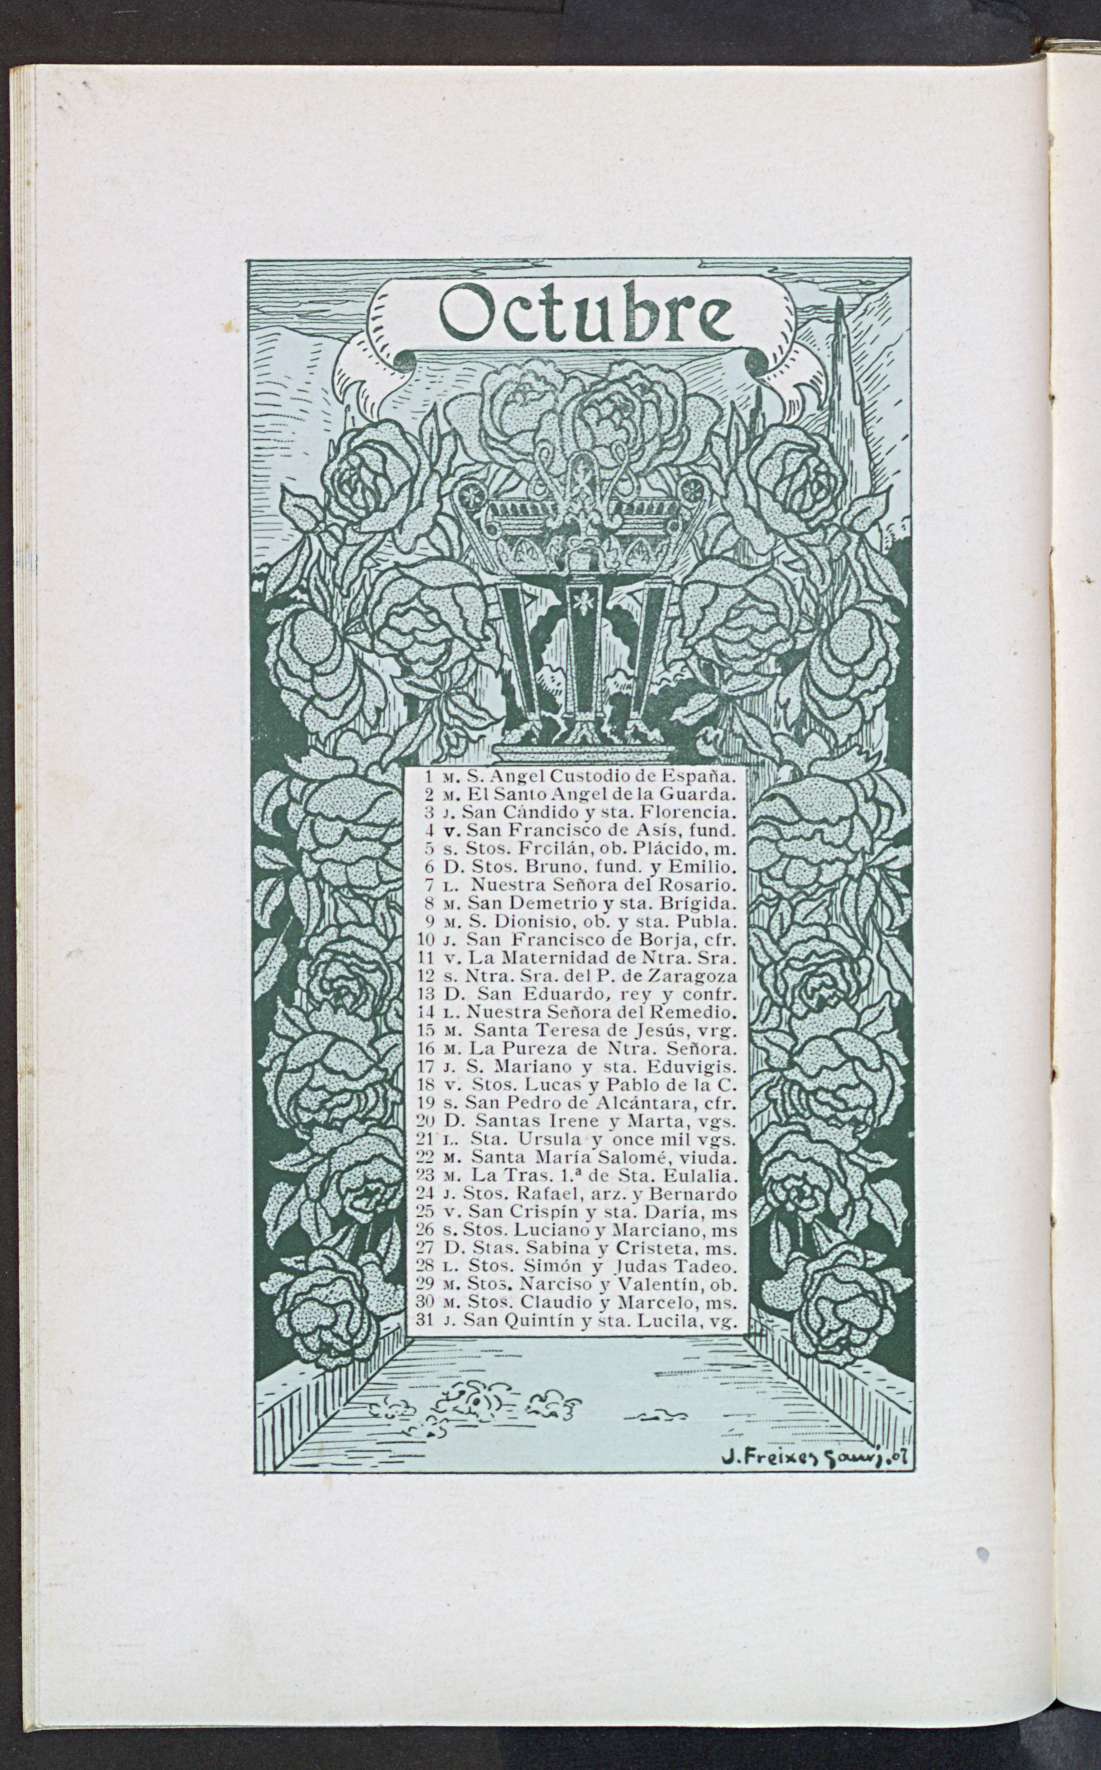 Octubre
1 M. S. Angel Custodio de España.
2 M. El Santo Angel de la Guarda.
3 J. San Cándido y sta. Florencia.
4 V. San Francisco de Asís, fund.
5 S. Stos. Froilán, ob. Plácido, m.
6 D. Stos. Bruno, fund. y Emilio.
7 L. Nuestra Señora del Rosario.
8 M. San Demetrio y sta. Brígida.
9 M. S. Dionisio, ob. y sta. Publa.
10 J. San Francisco de Borja, cfr.
11 V. La Maternidad de Ntra. Sra.
12 S. Ntra. Sra. del P. de Zaragoza
13 D. San Eduardo, rey y confr.
14 L. Nuestra Señora del Remedio.
15 M. Santa Teresa de Jesús, vrg.
16 M. La Pureza de Ntra. Señora.
17 J. S. Mariano y sta. Eduvigis.
18 V. Stos. Lucas y Pablo de la C.
19 S. San Pedro de Alcántara, cfr.
20 D. Santas Irene y Marta, vgs.
21 L. Sta. Ursula y once mil vgs.
22 M. Santa María Salomé, viuda.
23 M. La Tras. 1.ª de Sta. Eulalia.
24 J. Stos. Rafael, arz. y Bernardo
25 V. San Crispín y sta. Daría, ms
26 S. Stos. Luciano y Marciano, ms
27 D. Stas. Sabina y Cristeta, ms.
28 L. Stos. Simón y Judas Tadeo.
29 M. Stos. Narciso y Valentín, ob.
30 M. Stos. Claudio y Marcelo, ms.
31 J. San Quintín y sta. Lucila, vg.
J. Freixes